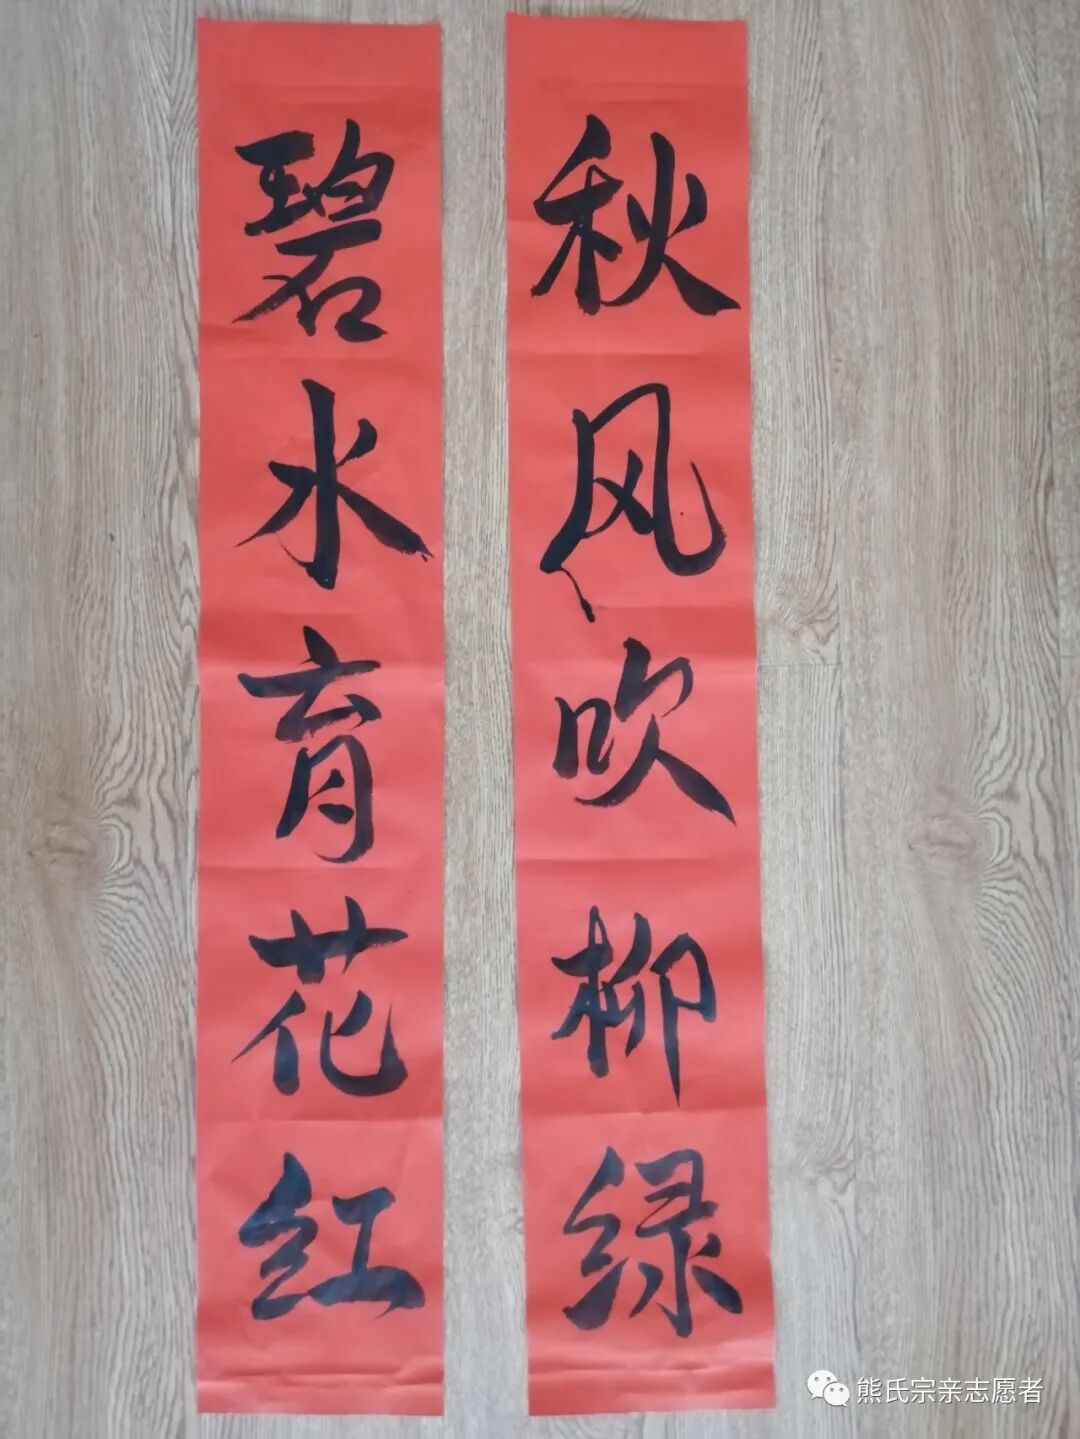 秋风吹柳绿
碧水育花红
熊氏宗亲志愿者